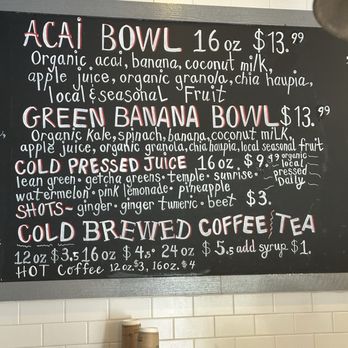 ACAI BOWL 16 oz $13.99
Organic acai, banana, coconut milk,
apple juice, organic granola, chia haupia,
local & seasonal Fruit
GREEN BANANA BOWL $13.99
Organic Kale, spinach, banana, coconut milk,
apple juice, organic granola, chia haupia, local seasonal fruit
COLD PRESSED JUICE 16 oz. $9.99 organic local pressed daily
lean green · getcha greens · temple · sunrise ·
watermelon · pink lemonade · pineapple
SHOTS ~ ginger · ginger tumeric · beet $3.
COLD BREWED COFFEE TEA
12 oz $3.5 16 oz $4.5 24 oz $5.5 add syrup $1.
HOT Coffee 12 oz. $3, 16 oz. $4